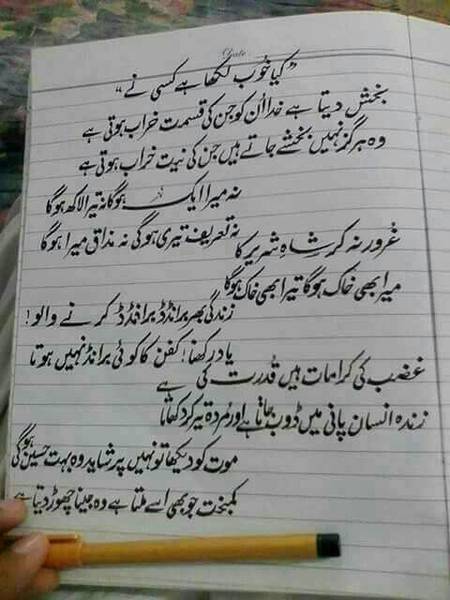 Date
"کیا خُوب لکھا ہے کسی نے"
بخش دیتا ہے خدا اُن کو جن کی قسمت خراب ہوتی ہے
وہ ہرگز نہیں بخشے جاتے ہیں جن کی نیت خراب ہوتی ہے
نہ میرا ایک ہوگا نہ تیرا لاکھ ہوگا
نہ تعریف تیری ہوگی نہ مذاق میرا ہوگا
غُرور نہ کر شاہِ شریر کا
میرا بھی خاک ہوگا تیرا بھی خاک ہوگا
زندگی بھر برانڈڈ برانڈڈ کرنے والو!
یاد رکھنا! کفن کا کوئی برانڈ نہیں ہوتا
غضب کی کرامات ہیں قُدرت کی ہے
زندہ انسان پانی میں ڈوب جاتا ہے اور مُردہ تیر کر دکھاتا
موت کو دیکھا تو نہیں پر شاید وہ بہت حسین ہوگی
کمبخت جو بھی اسے ملتا ہے وہ جینا چھوڑ دیتا ہے